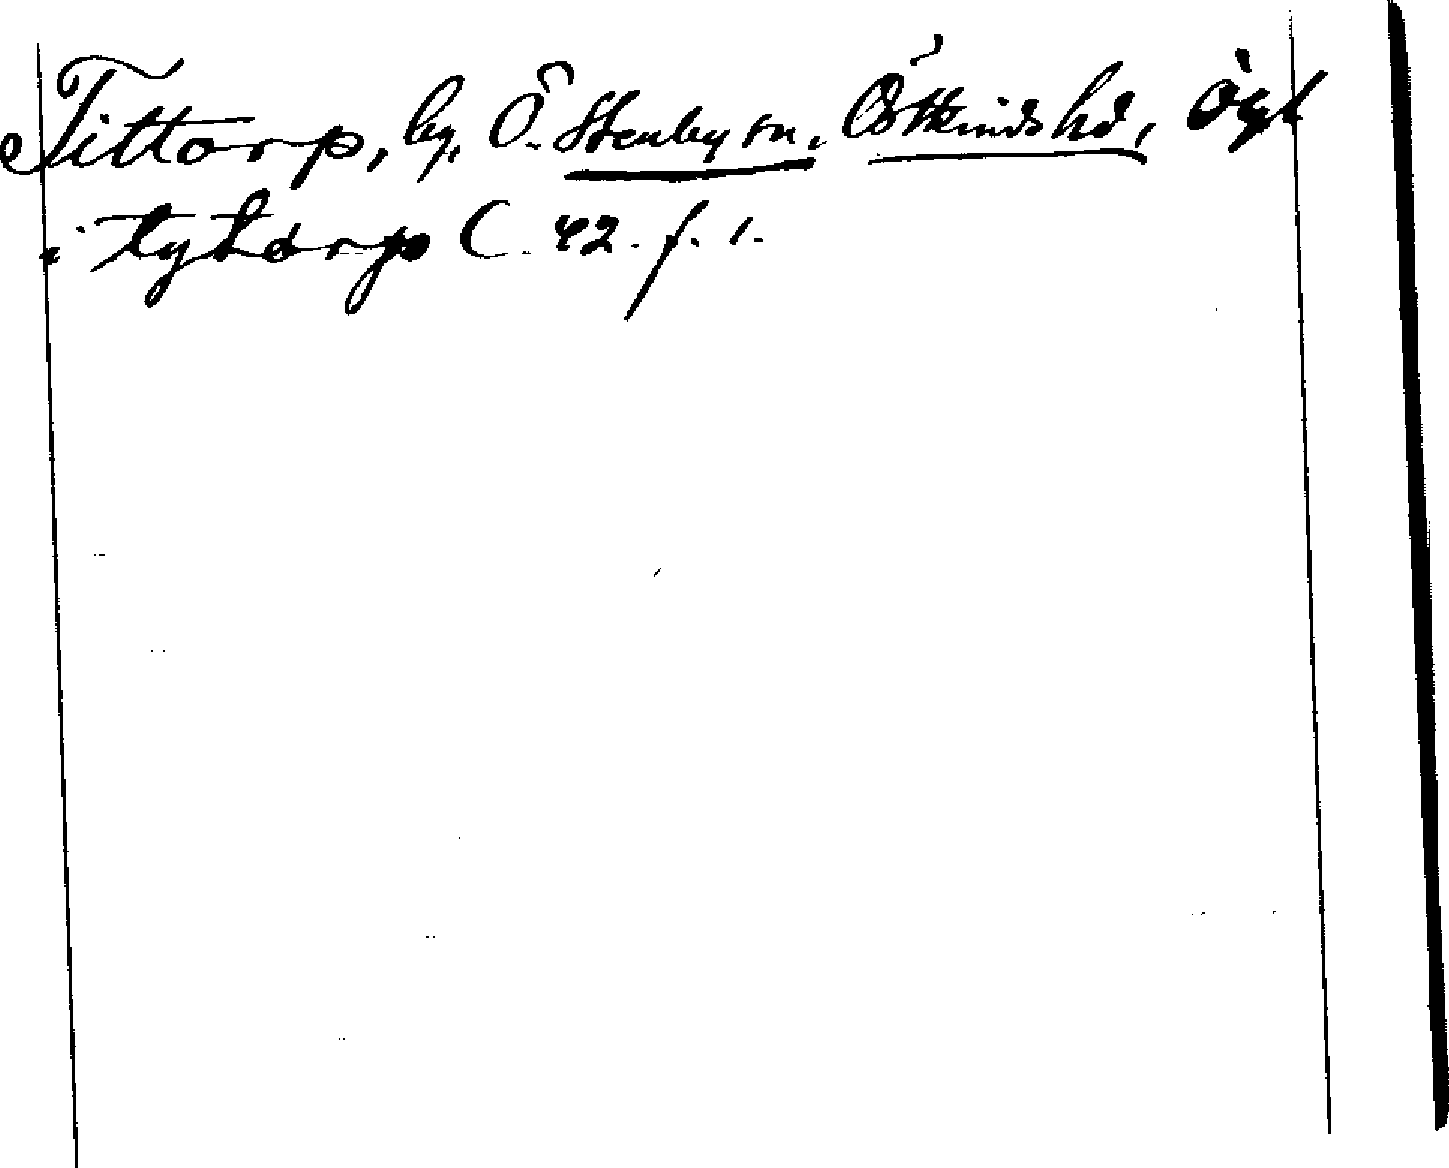 Tittorp, by, Ö. Stenby sn, Östkinds hd, Ögl
i tytorp C. 42. f. 1.